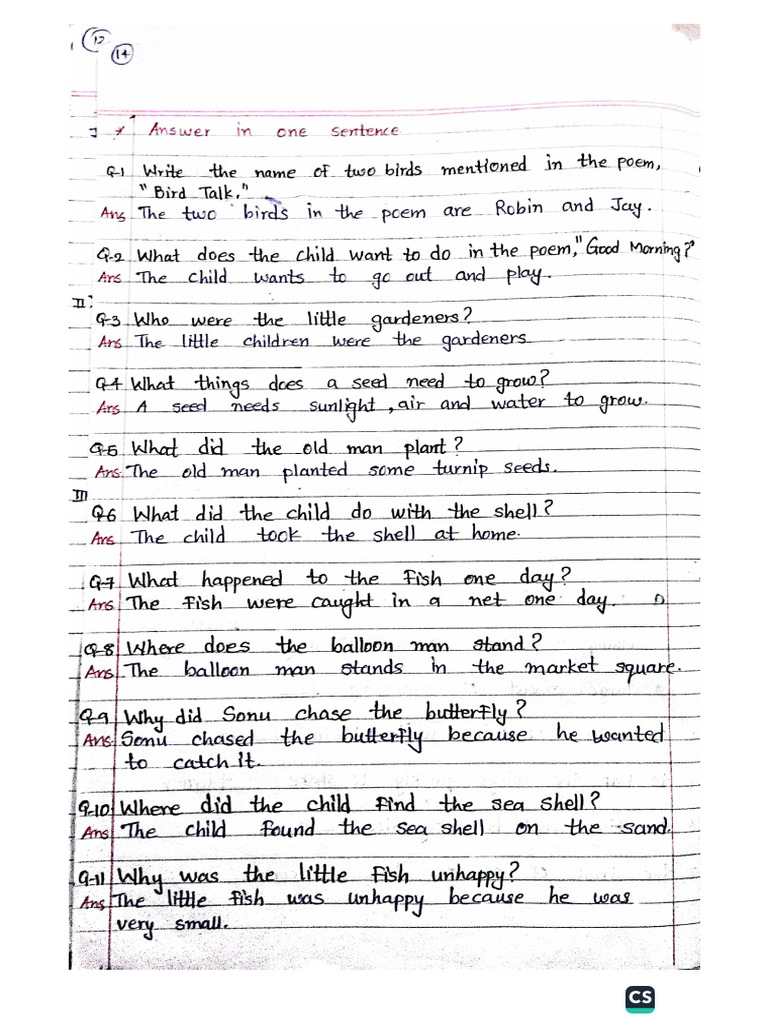 12
14
I * Answer in one sentence
Q-1 Write the name of two birds mentioned in the poem,
"Bird Talk."
Ans The two birds in the poem are Robin and Jay.
Q-2 What does the child want to do in the poem, "Good Morning?"
Ans The child wants to go out and play.
II:
Q-3 Who were the little gardeners?
Ans The little children were the gardeners
Q-4 What things does a seed need to grow?
Ans A seed needs sunlight, air and water to grow.
Q-5 What did the old man plant?
Ans. The old man planted some turnip seeds.
III
Q6 What did the child do with the shell?
Ans The child took the shell at home.
Q-7 What happened to the fish one day?
Ans The fish were caught in a net one day.
Q-8 Where does the balloon man stand?
Ans The balloon man stands in the market square.
Q-9 Why did Sonu chase the butterfly?
Ans Sonu chased the butterfly because he wanted
to catch it.
Q-10 Where did the child find the sea shell?
Ans The child found the sea shell on the sand.
Q-11 Why was the little fish unhappy?
Ans The little fish was unhappy because he was
very small.
CS